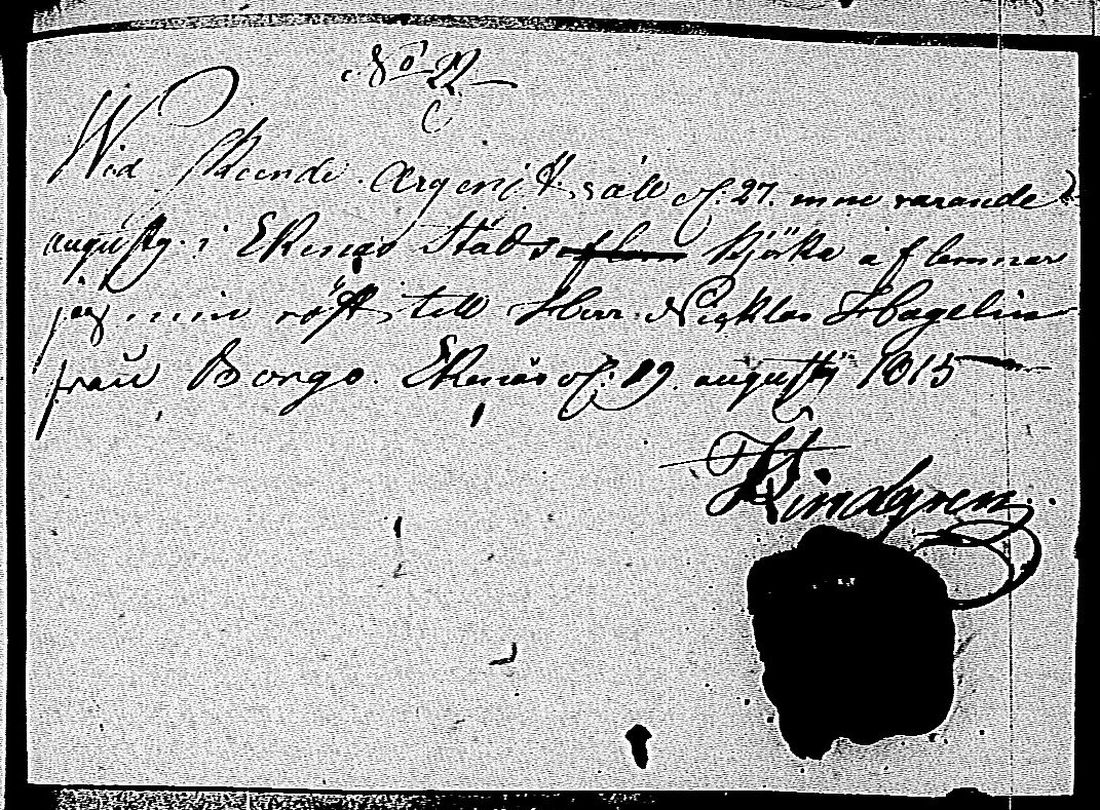 No 22
C
Wid skeende Orgenist,s väll d: 27. inne varande
augusty. i Ekenäs Städs aflem Kjörka aflemnar
jag min röst, till Herr. Nicklas Hagelin
fraŭ Borgo. Ekenäs d: 19. augusty 1815
Lindgren.